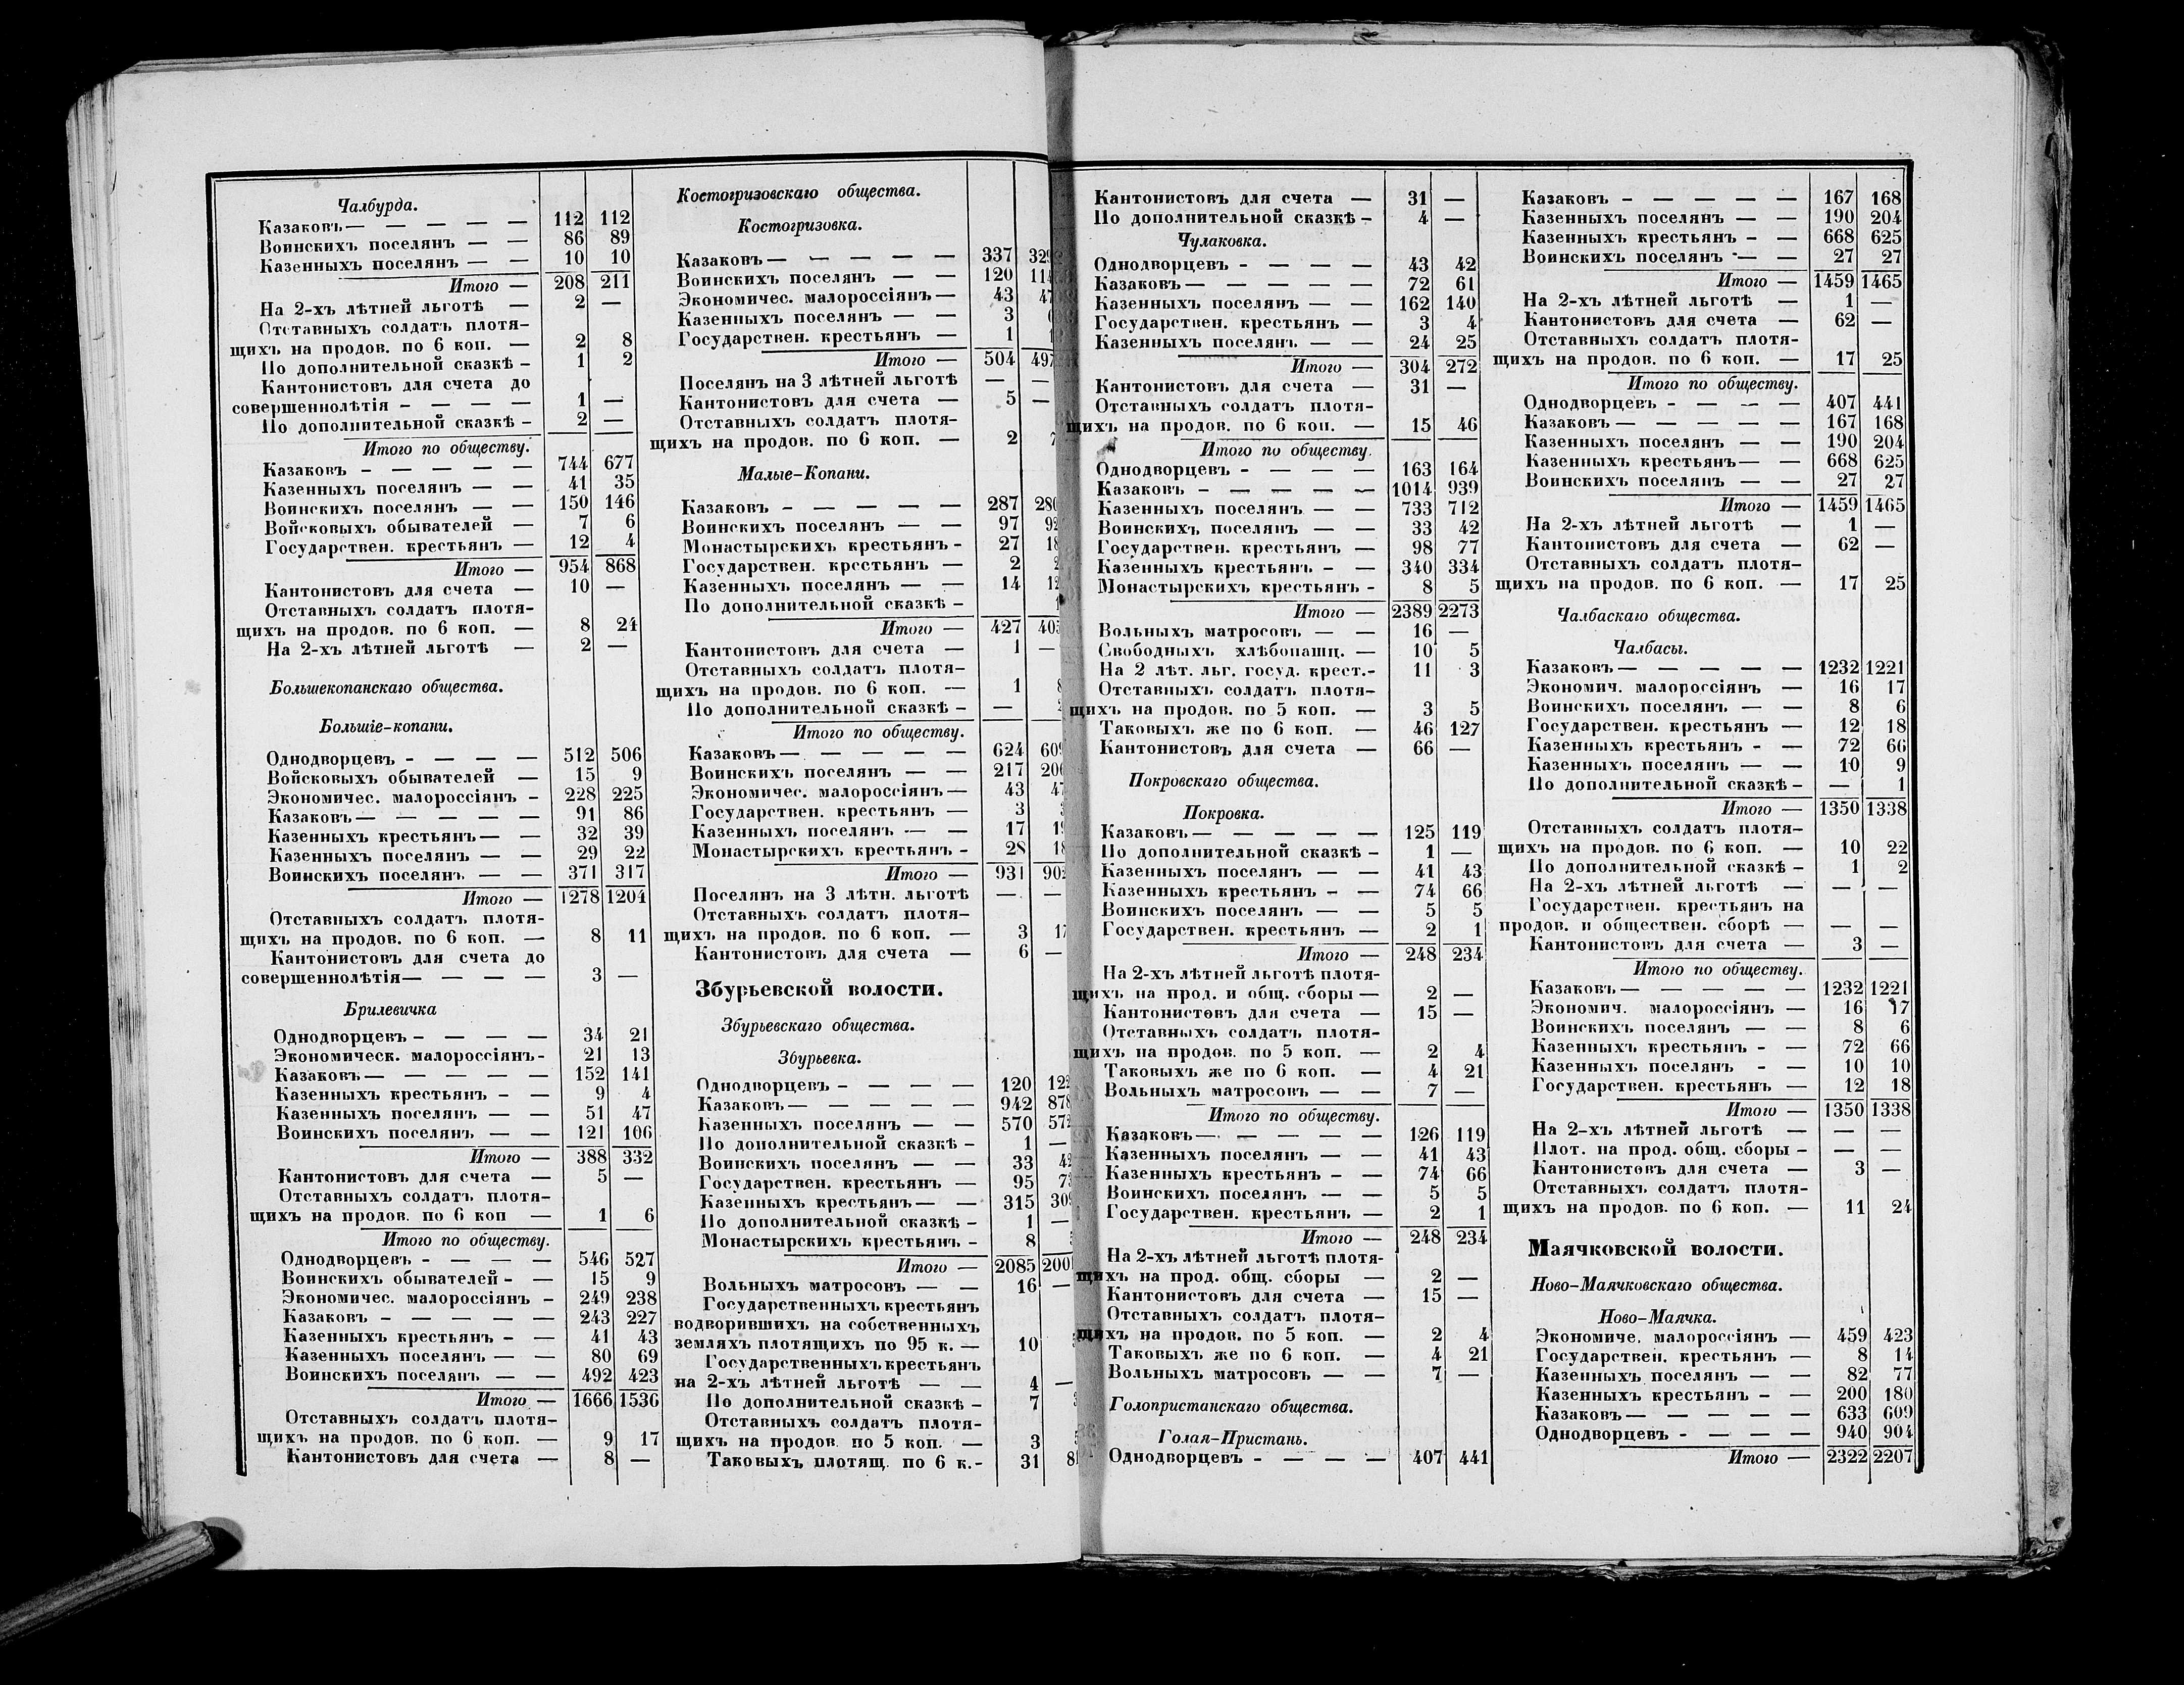 Чалбурда.
Казаковъ — — — — — 112 112
Воинскихъ поселянъ — — 86 89
Казенныхъ поселянъ — — 10 10
Итого — 208 211
На 2-хъ лѣтней льготѣ — 2 —
Отставныхъ солдатъ плотя-
щихъ на продов. по 6 коп. — 2 8
По дополнительной сказкѣ - 1 2
Кантонистовъ для счета до
совершеннолѣтія - — — — 1 —
По дополнительной сказкѣ - 2 —
Итого по обществу.
Казаковъ - — — — — 744 677
Казенныхъ поселянъ — — 41 35
Воинскихъ поселянъ — — 150 146
Войсковыхъ обывателей — 7 6
Государствен. крестьянъ — 12 4
Итого — 954 868
Кантонистовъ для счета — 10 —
Отставныхъ солдатъ плотя-
щихъ на продов. по 6 коп. — 8 24
На 2-хъ лѣтней льготѣ — 2 —
Большекопанскаго общества.
Большіе-копани.
Однодворцевъ - — — — 512 506
Войсковыхъ обывателей — 15 9
Экономичес. малороссіянъ - 228 225
Казаковъ — — — — — 91 86
Казенныхъ крестьянъ — — 32 39
Казенныхъ поселянъ — — 29 22
Воинскихъ поселянъ — — 371 317
Итого — 1278 1204
Отставныхъ солдатъ плотя-
щихъ на продов. по 6 коп. — 8 11
Кантонистовъ для счета до
совершеннолѣтія — — — — 3 —
Брилевичка
Однодворцевъ - — — — 34 21
Экономическ. малороссіянъ - 21 13
Казаковъ — — — — — 152 141
Казенныхъ крестьянъ - — 9 4
Казенныхъ поселянъ — — 51 47
Воинскихъ поселянъ — — 121 106
Итого — 388 332
Кантонистовъ для счета — 5 —
Отставныхъ солдатъ плотя-
щихъ на продов. по 6 коп — 1 6
Итого по обществу.
Однодворцевъ - — — — 546 527
Воинскихъ обывателей - — 15 9
Экономичес. малороссіянъ - 249 238
Казаковъ - — — — — 243 227
Казенныхъ крестьянъ - — 41 43
Казенныхъ поселянъ — — 80 69
Воинскихъ поселянъ — — 492 423
Итого — 1666 1536
Отставныхъ солдатъ плотя-
щихъ на продов. по 6 коп. — 9 17
Кантонистовъ для счета — 8 —
Костогризовскаго общества.
Костогризовка.
Казаковъ — — — — — 337
Воинскихъ поселянъ — — 120
Экономичес. малороссіянъ — 43
Казенныхъ поселянъ — — 3
Государствен. крестьянъ — 1
Итого — 504 497
Поселянъ на 3 лѣтней льготѣ — —
Кантонистовъ для счета — 5 —
Отставныхъ солдатъ плотя-
щихъ на продов. по 6 коп. — 2
Малые-Копани.
Казаковъ - — — — — 287
Воинскихъ поселянъ — — 97
Монастырскихъ крестьянъ - 27
Государствен. крестьянъ — 2
Казенныхъ поселянъ — — 14
По дополнительной сказкѣ -
Итого — 427
Кантонистовъ для счета — 1 —
Отставныхъ солдатъ плотя-
щихъ на продов. по 6 коп. — 1
По дополнительной сказкѣ - —
Итого по обществу.
Казаковъ — — — — — 624
Воинскихъ поселянъ — — 217
Экономичес. малороссіянъ — 43
Государствен. крестьянъ — 3
Казенныхъ поселянъ — — 17
Монастырскихъ крестьянъ - 28
Итого — 931
Поселянъ на 3 лѣтн. льготѣ — —
Отставныхъ солдатъ плотя-
щихъ на продов. по 6 коп. — 3
Кантонистовъ для счета — 6 —
Збурьевской волости.
Збурьевскаго общества.
Збурьевка.
Однодворцевъ - — — — 120
Казаковъ — — — — — 942
Казенныхъ поселянъ — — 570
По дополнительной сказкѣ - 1 —
Воинскихъ поселянъ — — 33
Государствен. крестьянъ — 95
Казенныхъ крестьянъ — — 315
По дополнительной сказкѣ - 1 —
Монастырскихъ крестьянъ - 8
Итого — 2085
Вольныхъ матросовъ — — 16 —
Государственныхъ крестьянъ
водворившихъ на собственныхъ
земляхъ плотящихъ по 95 к. — 10
Государственныхъ крестьянъ
на 2-хъ лѣтней льготѣ — — 4 —
По дополнительной сказкѣ - 7
Отставныхъ солдатъ плотя-
щихъ на продов. по 5 коп. — 3
Таковыхъ плотящ. по 6 к. - 31
Кантонистовъ для счета — 31 —
По дополнительной сказкѣ - 4 —
Чулаковка.
Однодворцевъ - — — — 43 42
Казаковъ — — — — — 72 61
Казенныхъ поселянъ — — 162 140
Государствен. крестьянъ — 3 4
Казенныхъ поселянъ — — 24 25
Итого — 304 272
Кантонистовъ для счета — 31 —
Отставныхъ солдатъ плотя-
щихъ на продов. по 6 коп. — 15 46
Итого по обществу.
Однодворцевъ - — — — 163 164
Казаковъ - — — — — 1014 939
Казенныхъ поселянъ — — 733 712
Воинскихъ поселянъ — — 33 42
Государствен. крестьянъ — 98 77
Казенныхъ крестьянъ - — 340 334
Монастырскихъ крестьянъ - 8 5
Итого — 2389 2273
Вольныхъ матросовъ — — 16 —
Свободныхъ хлѣбопашц. — 10 5
На 2 лѣт. льг. госуд. крест. - 11 3
Отставныхъ солдатъ плотя-
щихъ на продов. по 5 коп. — 3 5
Таковыхъ же по 6 коп. — 46 127
Кантонистовъ для счета — 66 —
Покровскаго общества.
Покровка.
Казаковъ — — — — — 125 119
По дополнительной сказкѣ - 1 —
Казенныхъ поселянъ — — 41 43
Казенныхъ крестьянъ - — 74 66
Воинскихъ поселянъ — — 5 5
Государствен. крестьянъ — 2 1
Итого — 248 234
На 2-хъ лѣтней льготѣ плотя-
щихъ на прод. и общ. сборы — 2 —
Кантонистовъ для счета — 15 —
Отставныхъ солдатъ плотя-
щихъ на продов. по 5 коп. — 2 4
Таковыхъ же по 6 коп. — 4 21
Вольныхъ матросовъ — — 7 —
Итого по обществу.
Казаковъ — — — — — 126 119
Казенныхъ поселянъ — — 41 43
Казенныхъ крестьянъ - — 74 66
Воинскихъ поселянъ — — 5 5
Государствен. крестьянъ — 2 1
Итого — 248 234
На 2-хъ лѣтней льготѣ плотя-
щихъ на прод. общ. сборы — 2 —
Кантонистовъ для счета — 15 —
Отставныхъ солдатъ плотя-
щихъ на продов. по 5 коп. — 2 4
Таковыхъ же по 6 коп. — 4 21
Вольныхъ матросовъ — — 7 —
Голопристанскаго общества.
Голая-Пристань.
Однодворцевъ - — — — 407 441
Казаковъ - — — — — 167 168
Казенныхъ поселянъ — — 190 204
Казенныхъ крестьянъ - — 668 625
Воинскихъ поселянъ — — 27 27
Итого — 1459 1465
На 2-хъ лѣтней льготѣ — 1 —
Кантонистовъ для счета — 62 —
Отставныхъ солдатъ плотя-
щихъ на продов. по 6 коп. — 17 25
Итого по обществу.
Однодворцевъ - — — — 407 441
Казаковъ — — — — — 167 168
Казенныхъ поселянъ — — 190 204
Казенныхъ крестьянъ — — 668 625
Воинскихъ поселянъ — — 27 27
Итого — 1459 1465
На 2-хъ лѣтней льготѣ — 1 —
Кантонистовъ для счета — 62 —
Отставныхъ солдатъ плотя-
щихъ на продов. по 6 коп. — 17 25
Чалбаскаго общества.
Чалбасы.
Казаковъ — — — — — 1232 1221
Экономич. малороссіянъ — 16 17
Воинскихъ поселянъ — — 8 6
Государствен. крестьянъ — 12 18
Казенныхъ крестьянъ - — 72 66
Казенныхъ поселянъ — — 10 9
По дополнительной сказкѣ - — 1
Итого — 1350 1338
Отставныхъ солдатъ плотя-
щихъ на продов. по 6 коп. — 10 22
По дополнительной сказкѣ - 1 2
На 2-хъ лѣтней льготѣ — — —
Государствен. крестьянъ на
продов. и обществен. сборѣ — — —
Кантонистовъ для счета — 3 —
Итого по обществу.
Казаковъ — — — — — 1232 1221
Экономич. малороссіянъ — 16 17
Воинскихъ поселянъ — — 8 6
Казенныхъ крестьянъ - — 72 66
Казенныхъ поселянъ - — 10 10
Государствен. крестьянъ — 12 18
Итого — 1350 1338
На 2-хъ лѣтней льготѣ — — —
Плот. на прод. общ. сборы - — —
Кантонистовъ для счета — 3 —
Отставныхъ солдатъ плотя-
щихъ на продов. по 6 коп. — 11 24
Маячковской волости.
Ново-Маячковскаго общества.
Ново-Маячка.
Экономиче. малороссіянъ — 459 423
Государствен. крестьянъ — 8 14
Казенныхъ поселянъ — — 82 77
Казенныхъ крестьянъ - — 200 180
Казаковъ — — — — — 633 609
Однодворцевъ - — — — 940 904
Итого — 2322 2207